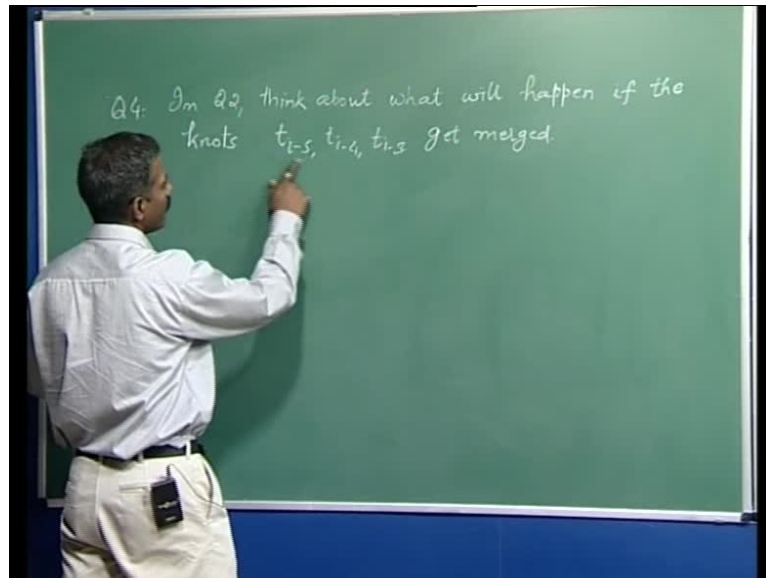 Q4: In Q2, think about what will happen if the
knots t_{i-5}, t_{i-4}, t_{i-3} get merged.